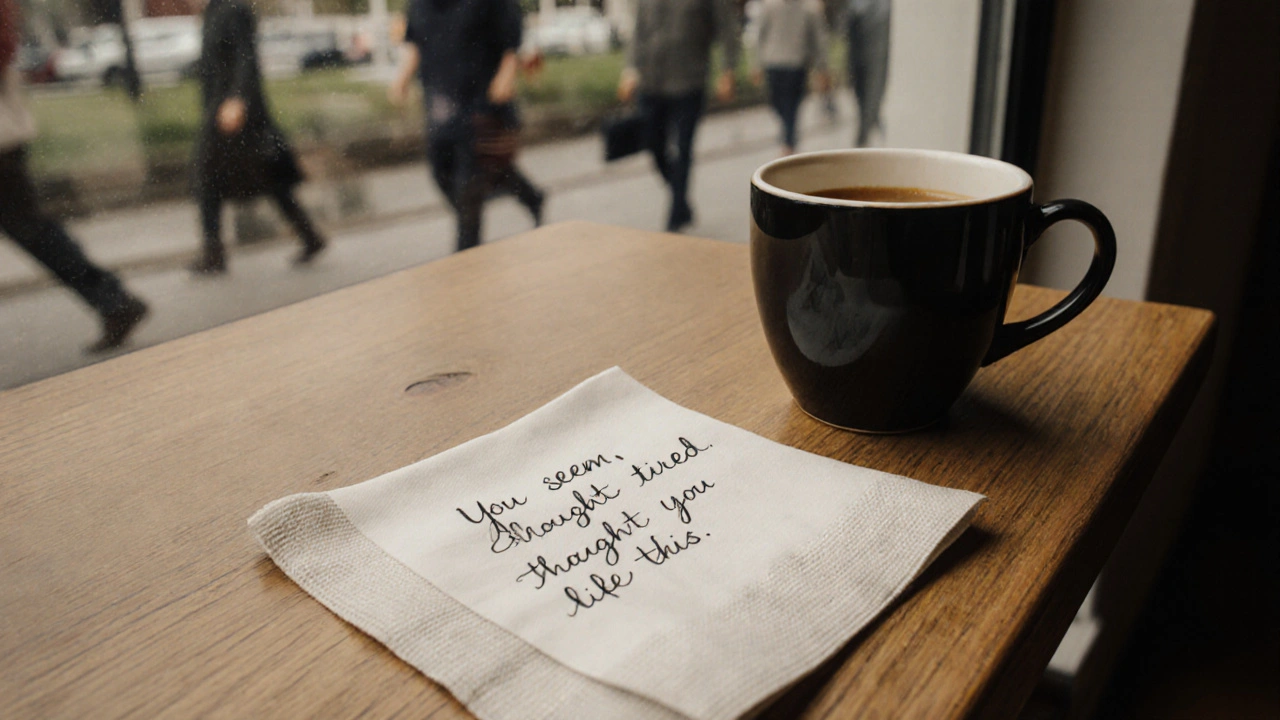 You seem,
thought tired.
thought you
life this.